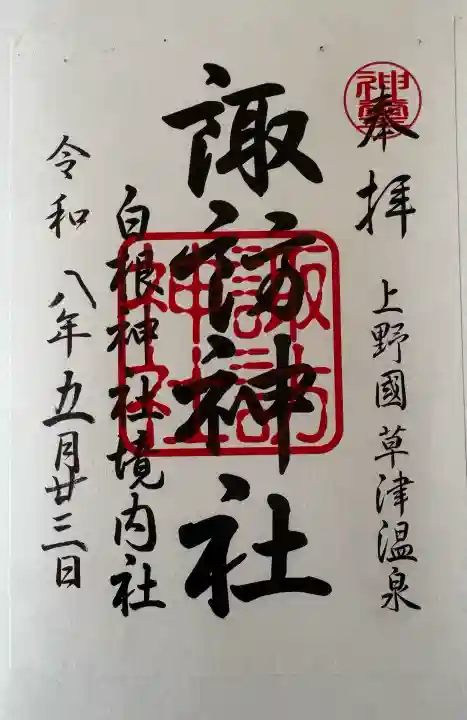 奉拝
上野國草津温泉
諏訪神社
白根神社境内社
令和八年五月廿三日
諏訪神社